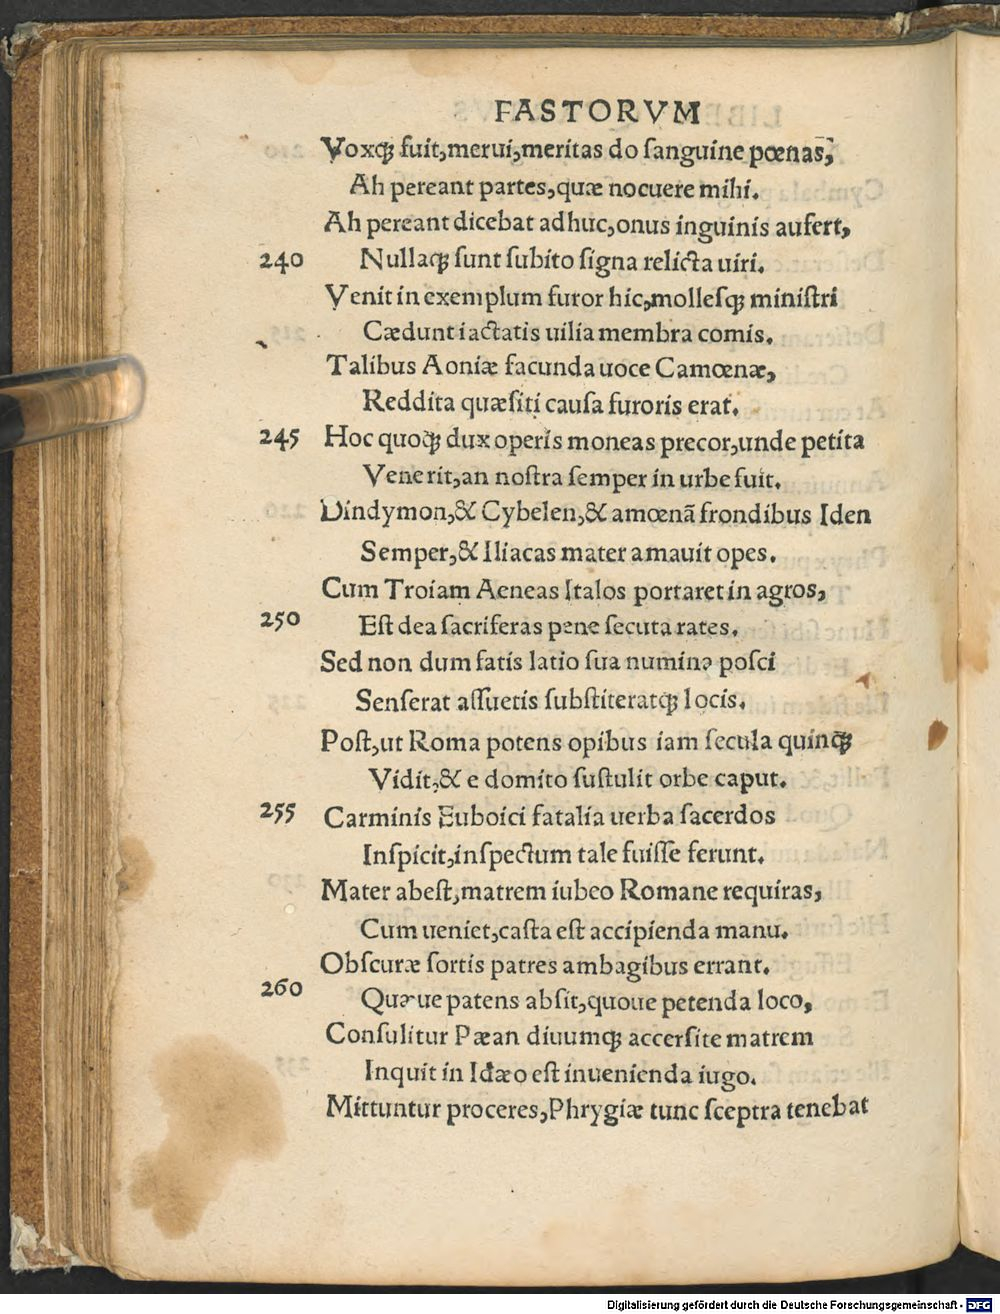 FASTORVM
Voxq; fuit,merui,meritas do ſanguine pœnas,
Ah pereant partes,quæ nocuere mihi.
Ah pereant dicebat adhuc,onus inguinis aufert,
240 Nullaq; ſunt ſubito ſigna relicta uiri.
Venit in exemplum furor hic,molleſq; miniſtri
Cædunt iactatis uilia membra comis.
Talibus Aoniæ facunda uoce Camœnæ,
Reddita quæſiti cauſa furoris erat.
245 Hoc quoq; dux operis moneas precor,unde petita
Venerit,an noſtra ſemper in urbe fuit.
Dindymon,& Cybelen,& amœnã frondibus Iden
Semper,& Iliacas mater amauit opes.
Cum Troiam Aeneas Italos portaret in agros,
250 Eſt dea ſacriferas pene ſecuta rates.
Sed non dum fatis latio ſua numina poſci
Senſerat aſſuetis ſubſtiteratq; locis.
Poſt,ut Roma potens opibus iam ſecula quinq;
Vidit,& e domito ſuſtulit orbe caput.
255 Carminis Euboici fatalia uerba ſacerdos
Inſpicit,inſpectum tale fuiſſe ferunt.
Mater abeſt,matrem iubeo Romane requiras,
Cum ueniet,caſta eſt accipienda manu.
Obſcuræ ſortis patres ambagibus errant.
260 Quæue patens abſit,quoue petenda loco,
Conſulitur Pæan diuumq; accerſite matrem
Inquit in Idæo eſt inuenienda iugo.
Mittuntur proceres,Phrygiæ tunc ſceptra tenebat
Digitalisierung gefördert durch die Deutsche Forschungsgemeinschaft - DFG